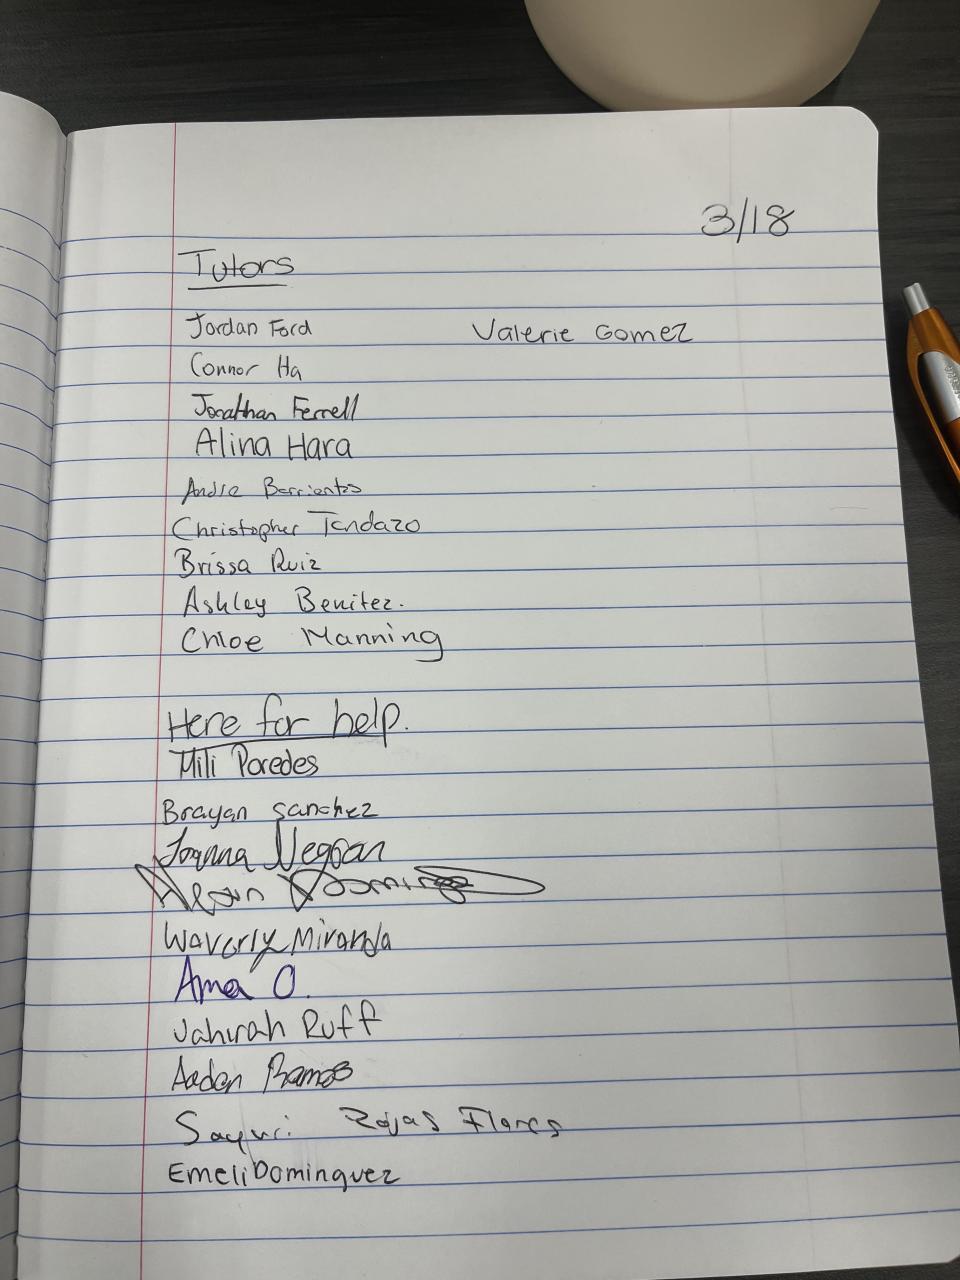 3/18
Tutors
Jordan Ford Valerie Gomez
Connor Ha
Jonathan Ferrell
Alina Hara
Andre Barrientos
Christopher Tandazo
Brissa Ruiz
Ashley Benitez.
Chloe Manning
Here for help.
Mili Paredes
Brayan Sanchez
Joanna Negoan
Waverly Miranda
Ama O.
Jahirah Ruff
Aaden Ramos
Sayuri Rojas Flores
Emeli Dominguez